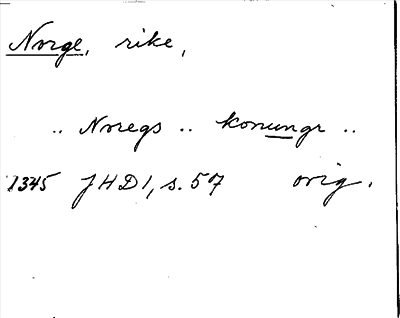 Norge, rike,
.. Noregs .. konungr ..
1345 JHD 1, s. 57 orig.